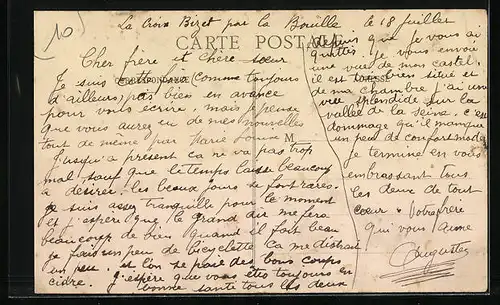 10
La Croix Bizet par la Bouille
le 18 juillet
CARTE POSTALE
CORRESPONDANCE
ADRESSE
M
Cher frère et Chère sœur
Je suis comme toujours
d'ailleurs pas bien en avance
pour vous écrire, mais je pense
que vous aurez eu de mes nouvelles
tout de même par Marie Louise
Jusqu'a présent ca ne va pas trop
mal sauf que le temps laisse beaucoup
a désirer. les beaux jours se font rares.
je suis assez tranquille pour le moment
et j'espère que le grand air me fera
beaucoup de bien. Quand il fait beau
je fais un peu de bicyclette ca me distrait
un peu. et l'on se paie des bons coups
cidre. J'espère que vous êtes toujours en
bonne santé tous les deux
depuis que je vous ai
quittés je vous envoi
une vue de mon castel
il est bien situé et
de ma chambre j'ai une
vue splendide sur la
vallée de la seine. c'est
dommage qu'il manque
un peu de confort
je termine en vous
embrassant tous
les deux de tout
cœur. Votre frère
qui vous aime
Auguste